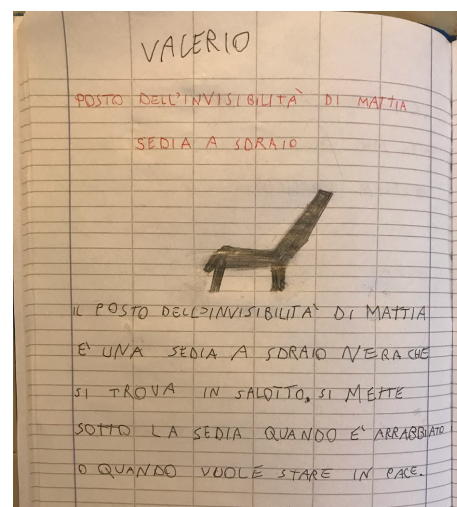 VALERIO
POSTO DELL'INVISIBILITÀ DI MATTIA
SEDIA A SDRAIO
IL POSTO DELL'INVISIBILITA' DI MATTIA
E' UNA SEDIA A SDRAIO NERA CHE
SI TROVA IN SALOTTO. SI METTE
SOTTO LA SEDIA QUANDO E' ARRABBIATO
O QUANDO VUOLE STARE IN PACE.